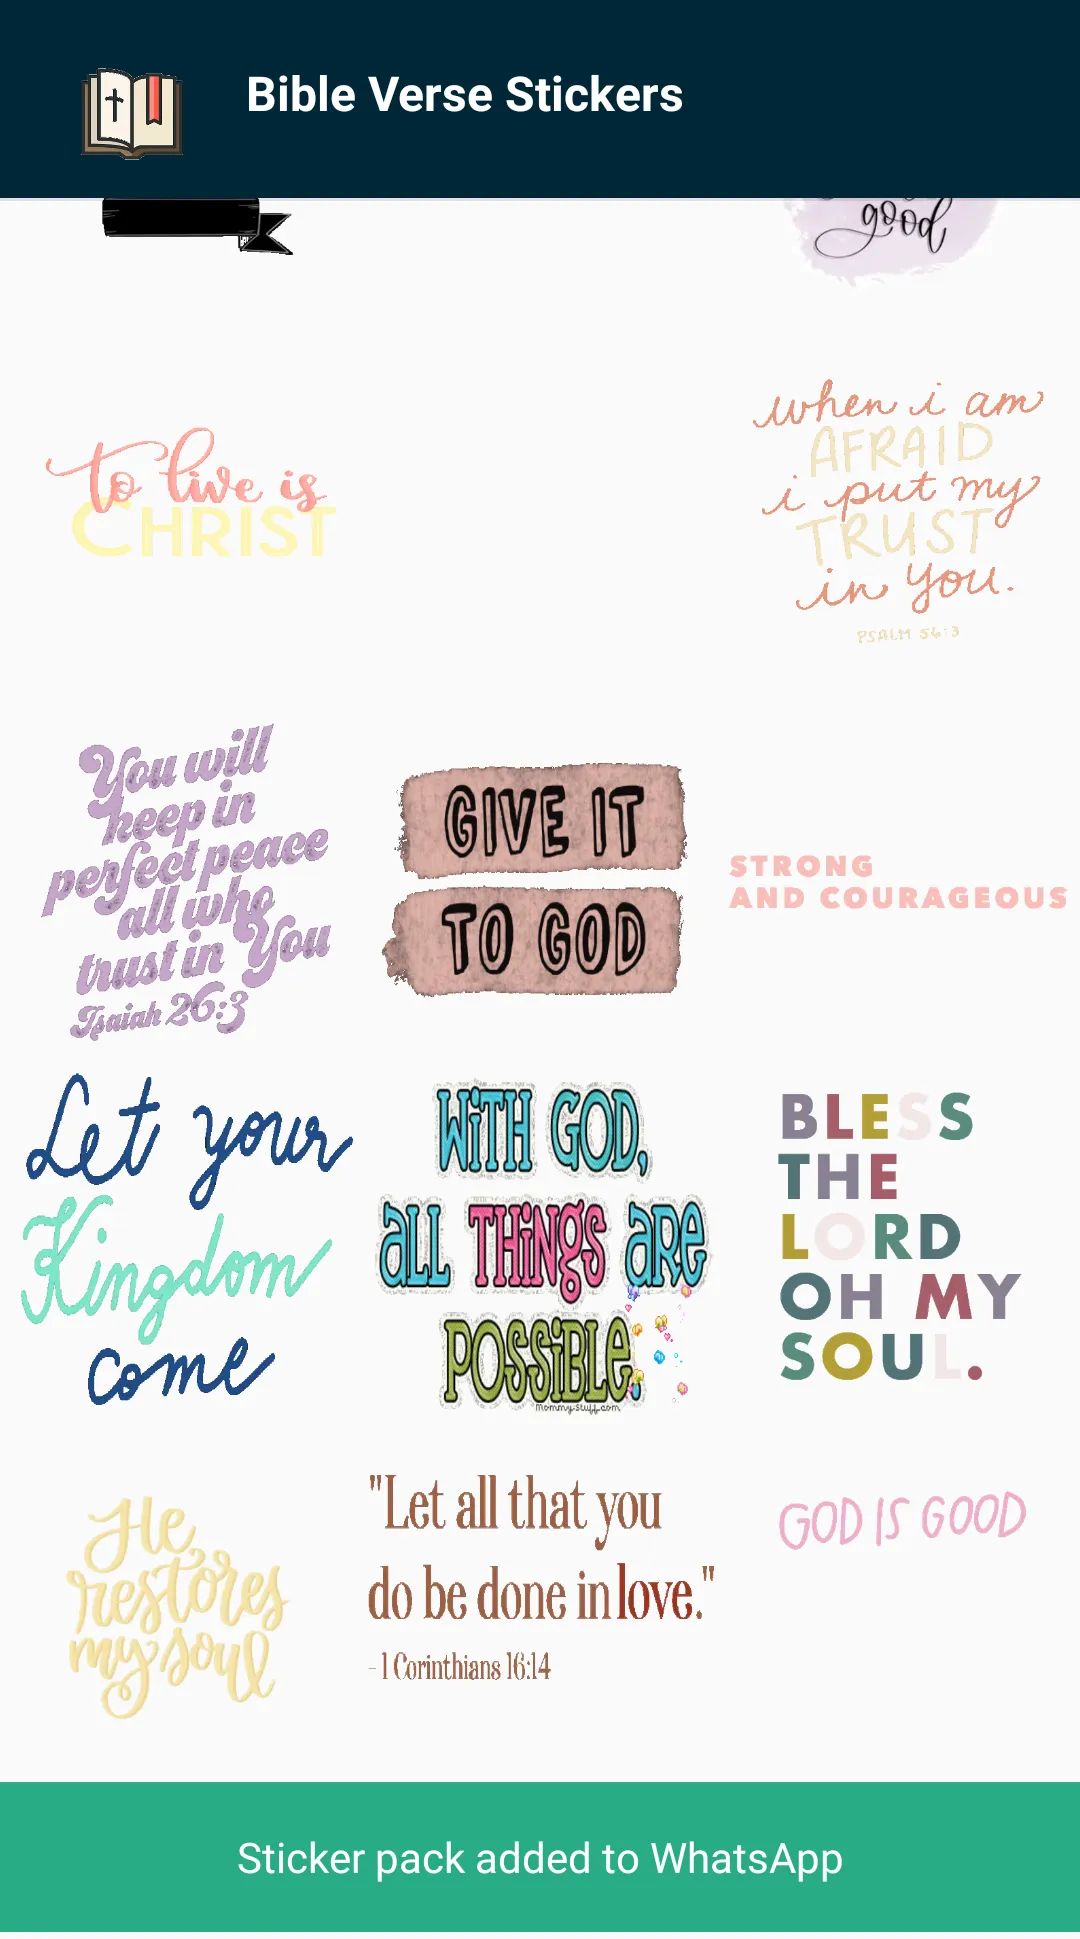 Bible Verse Stickers
good
to live is
CHRIST
when i am
AFRAID
i put my
TRUST
in you.
PSALM 56:3
You will
keep in
perfect peace
all who
trust in You
Isaiah 26:3
GIVE IT
TO GOD
STRONG
AND COURAGEOUS
Let your
Kingdom
come
WiTH GOD,
aLL THiNgs aRe
POSSiBLe.
Mommy-Stuff.com
BLESS
THE
LORD
OH MY
SOUL.
He
restores
my soul
"Let all that you
do be done in love."
- 1 Corinthians 16:14
GOD IS GOOD
Sticker pack added to WhatsApp